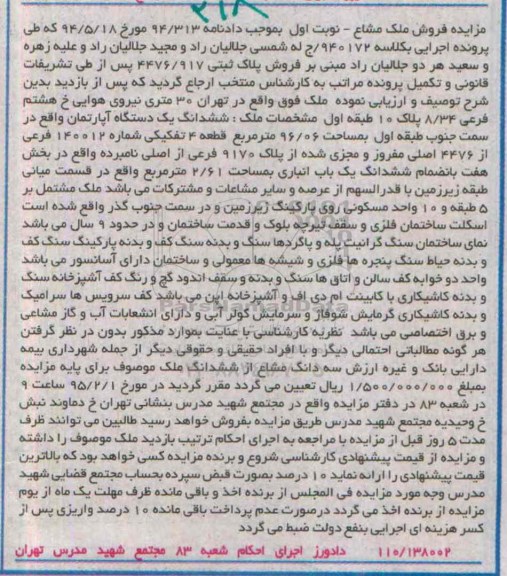 ۲۱۸
مزایده فروش ملک مشاع - نوبت اول بموجب دادنامه ۹۴/۳۱۳ مورخ ۹۴/۵/۱۸ که طی
پرونده اجرایی بکلاسه ۹۴۰۱۷۲/ج له شمسی جلالیان راد و مجید جلالیان راد و علیه زهره
و سعید هر دو جلالیان راد مبنی بر فروش پلاک ثبتی ۴۴۷۶/۹۱۷ پس از طی تشریفات
قانونی و تکمیل پرونده مراتب به کارشناس منتخب ارجاع گردید که پس از بازدید بدین
شرح توصیف و ارزیابی نموده ملک فوق واقع در تهران ۳۰ متری نیروی هوایی خ هشتم
فرعی ۸/۳۴ پلاک ۱۰ طبقه اول مشخصات ملک : ششدانگ یک دستگاه آپارتمان واقع در
سمت جنوب طبقه اول بمساحت ۹۶/۰۶ مترمربع قطعه ۴ تفکیکی شماره ۱۴۰۰۱۲ فرعی
از ۴۴۷۶ اصلی مفروز و مجزی شده از پلاک ۹۱۷۰ فرعی از اصلی نامبرده واقع در بخش
هفت بانضمام ششدانگ یک باب انباری بمساحت ۲/۶۱ مترمربع واقع در قسمت میانی
طبقه زیرزمین با قدرالسهم از عرصه و سایر مشاعات و مشترکات می باشد ملک مشتمل بر
۵ طبقه و ۱۰ واحد مسکونی روی پارکینگ زیرزمین و در سمت جنوب گذر واقع شده است
اسکلت ساختمان فلزی و سقف تیرچه بلوک و قدمت ساختمان و در حدود ۹ سال می باشد
نمای ساختمان سنگ گرانیت پله و پاگردها سنگ و بدنه سنگ کف و بدنه پارکینگ سنگ کف
و بدنه حیاط سنگ پنجره ها فلزی و شیشه ها معمولی و ساختمان دارای آسانسور می باشد
واحد دو خوابه کف سالن و اتاق ها سنگ و بدنه و سقف اندود گچ و رنگ کف آشپزخانه سنگ
و بدنه کاشیکاری با کابینت ام دی اف و آشپزخانه اپن می باشد کف سرویس ها سرامیک
و بدنه کاشیکاری گرمایش شوفاژ و سرمایش کولر آبی و دارای انشعابات آب و گاز مشاعی
و برق اختصاصی می باشد نظریه کارشناسی با عنایت بموارد مذکور بدون در نظر گرفتن
هر گونه مطالباتی احتمالی دیگر و با افراد حقیقی و حقوقی دیگر از جمله شهرداری بیمه
دارایی بانک و غیره ارزش سه دانگ مشاع از ششدانگ ملک موصوف برای پایه مزایده
بمبلغ ۱/۵۰۰/۰۰۰/۰۰۰ ریال تعیین می گردد مقرر گردید در مورخ ۹۵/۲/۱ ساعت ۹
در شعبه ۸۳ در دفتر مزایده واقع در مجتمع شهید مدرس بنشانی تهران خ دماوند نبش
خ وحیدیه مجتمع شهید مدرس طریق مزایده بفروش خواهد رسید طالبین می توانند ظرف
مدت ۵ روز قبل از مزایده با مراجعه به اجرای احکام ترتیب بازدید ملک موصوف را داشته
و مزایده از قیمت پیشنهادی کارشناسی شروع و برنده مزایده کسی خواهد بود که بالاترین
قیمت پیشنهادی را ارائه نماید ۱۰ درصد بصورت قبض سپرده بحساب مجتمع قضایی شهید
مدرس وجه مورد مزایده فی المجلس از برنده اخذ و باقی مانده ظرف مهلت یک ماه از یوم
مزایده از برنده اخذ می گردد درصورت عدم پرداخت باقی مانده ۱۰ درصد واریزی پس از
کسر هزینه ای اجرایی بنفع دولت ضبط می گردد
۱۱۰/۱۳۸۰۰۲ دادورز اجرای احکام شعبه ۸۳ مجتمع شهید مدرس تهران